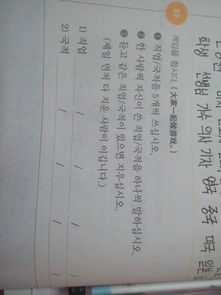 학생 선생님 가수 의사 기자 영국 중국 미국 일본
02
게임을 합시다. (大家一起做游戏。)
❶ 직업/국적을 5개씩 쓰십시오.
❷ 한 사람씩 자신이 쓴 직업/국적을 하나씩 말하십시오.
❸ 듣고 같은 직업/국적이 있으면 지우십시오.
(제일 먼저 다 지운 사람이 이깁니다.)
1) 직업 / / / /
2) 국적 / / / /